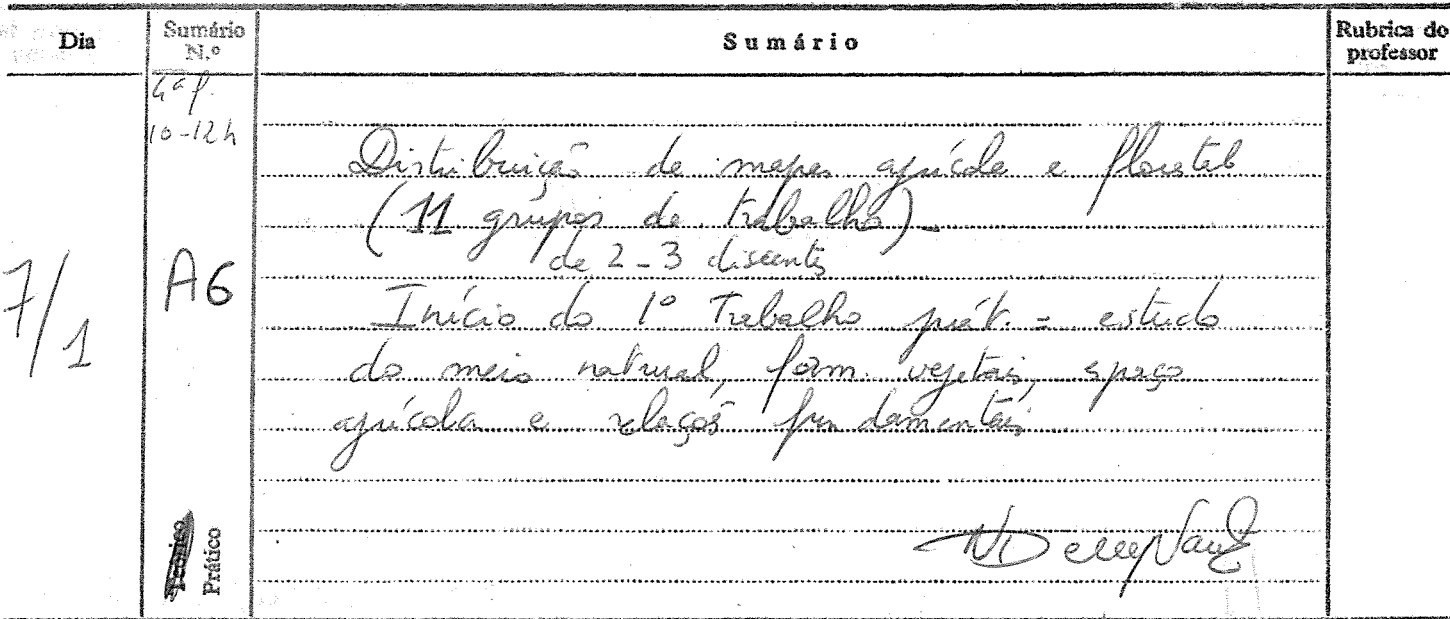 Dia
Sumário N.º
Sumário
Rubrica do professor
4ª f.
10-12h
7/1
A6
Distribuição de mapas agrícola e florestal
(11 grupos de trabalho)
de 2-3 discentes
Início do 1º Trabalho prát. = estudo
do meio natural, form. vegetais, espaço
agrícola e relações fundamentais
Teórico
Prático